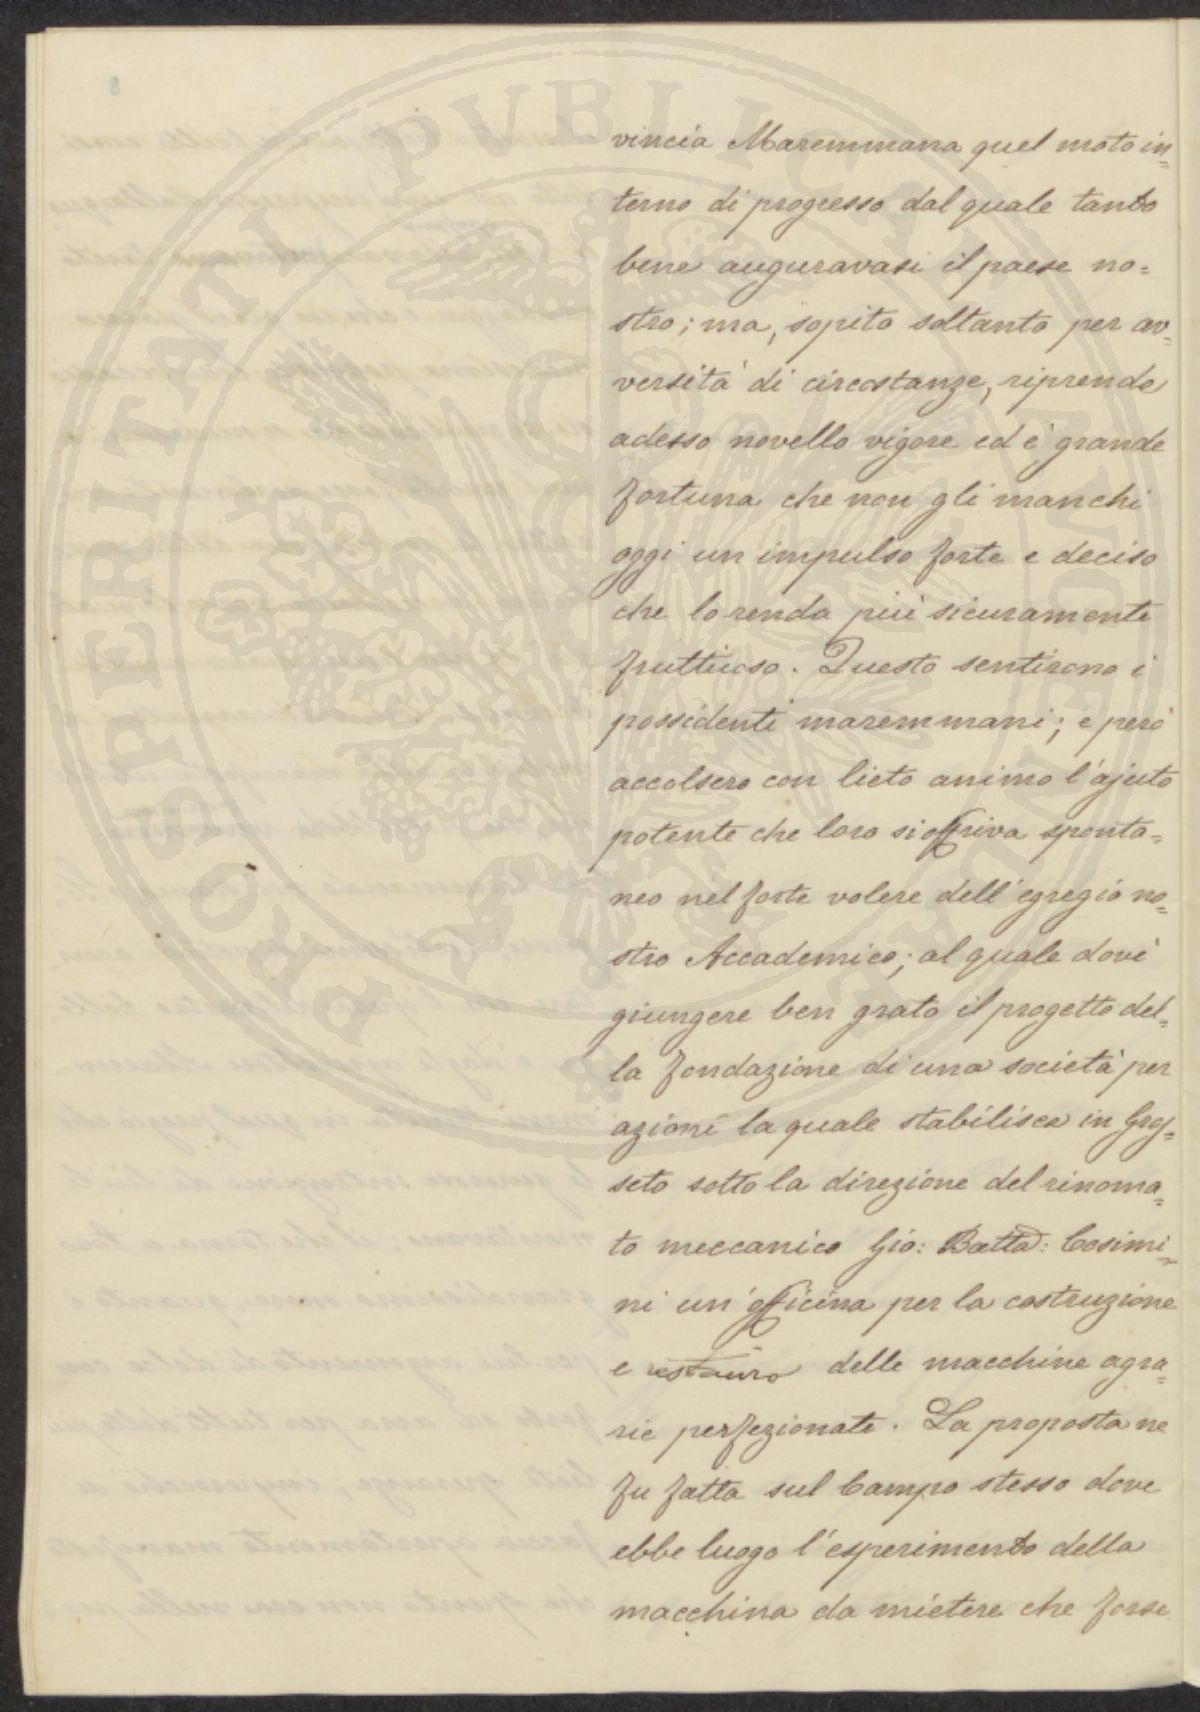 vincia Maremmana quel moto in=
terno di progresso dal quale tanto
bene auguravasi il paese no=
stro; ma, sopito soltanto per av=
versità di circostanze, riprende
adesso novello vigore ed è grande
fortuna che non gli manchi
oggi un impulso forte e deciso
che lo renda più sicuramente
fruttuoso. Questo sentirono i
possidenti maremmani; e però
accolsero con lieto animo l'ajuto
potente che loro si offriva sponta=
neo nel forte volere dell'egregio no=
stro Accademico; al quale dovè
giungere ben grato il progetto del=
la fondazione di una società per
azioni la quale stabilisca in Gros=
seto sotto la direzione del rinoma=
to meccanico Gio: Batta: Cosimi=
ni un'officina per la costruzione
e restauro delle macchine agra=
rie perfezionate. La proposta ne
fu fatta sul Campo stesso dove
ebbe luogo l'esperimento della
macchina da mietere che forse
PROSPERITATI PVBLICAE AVGENDAE